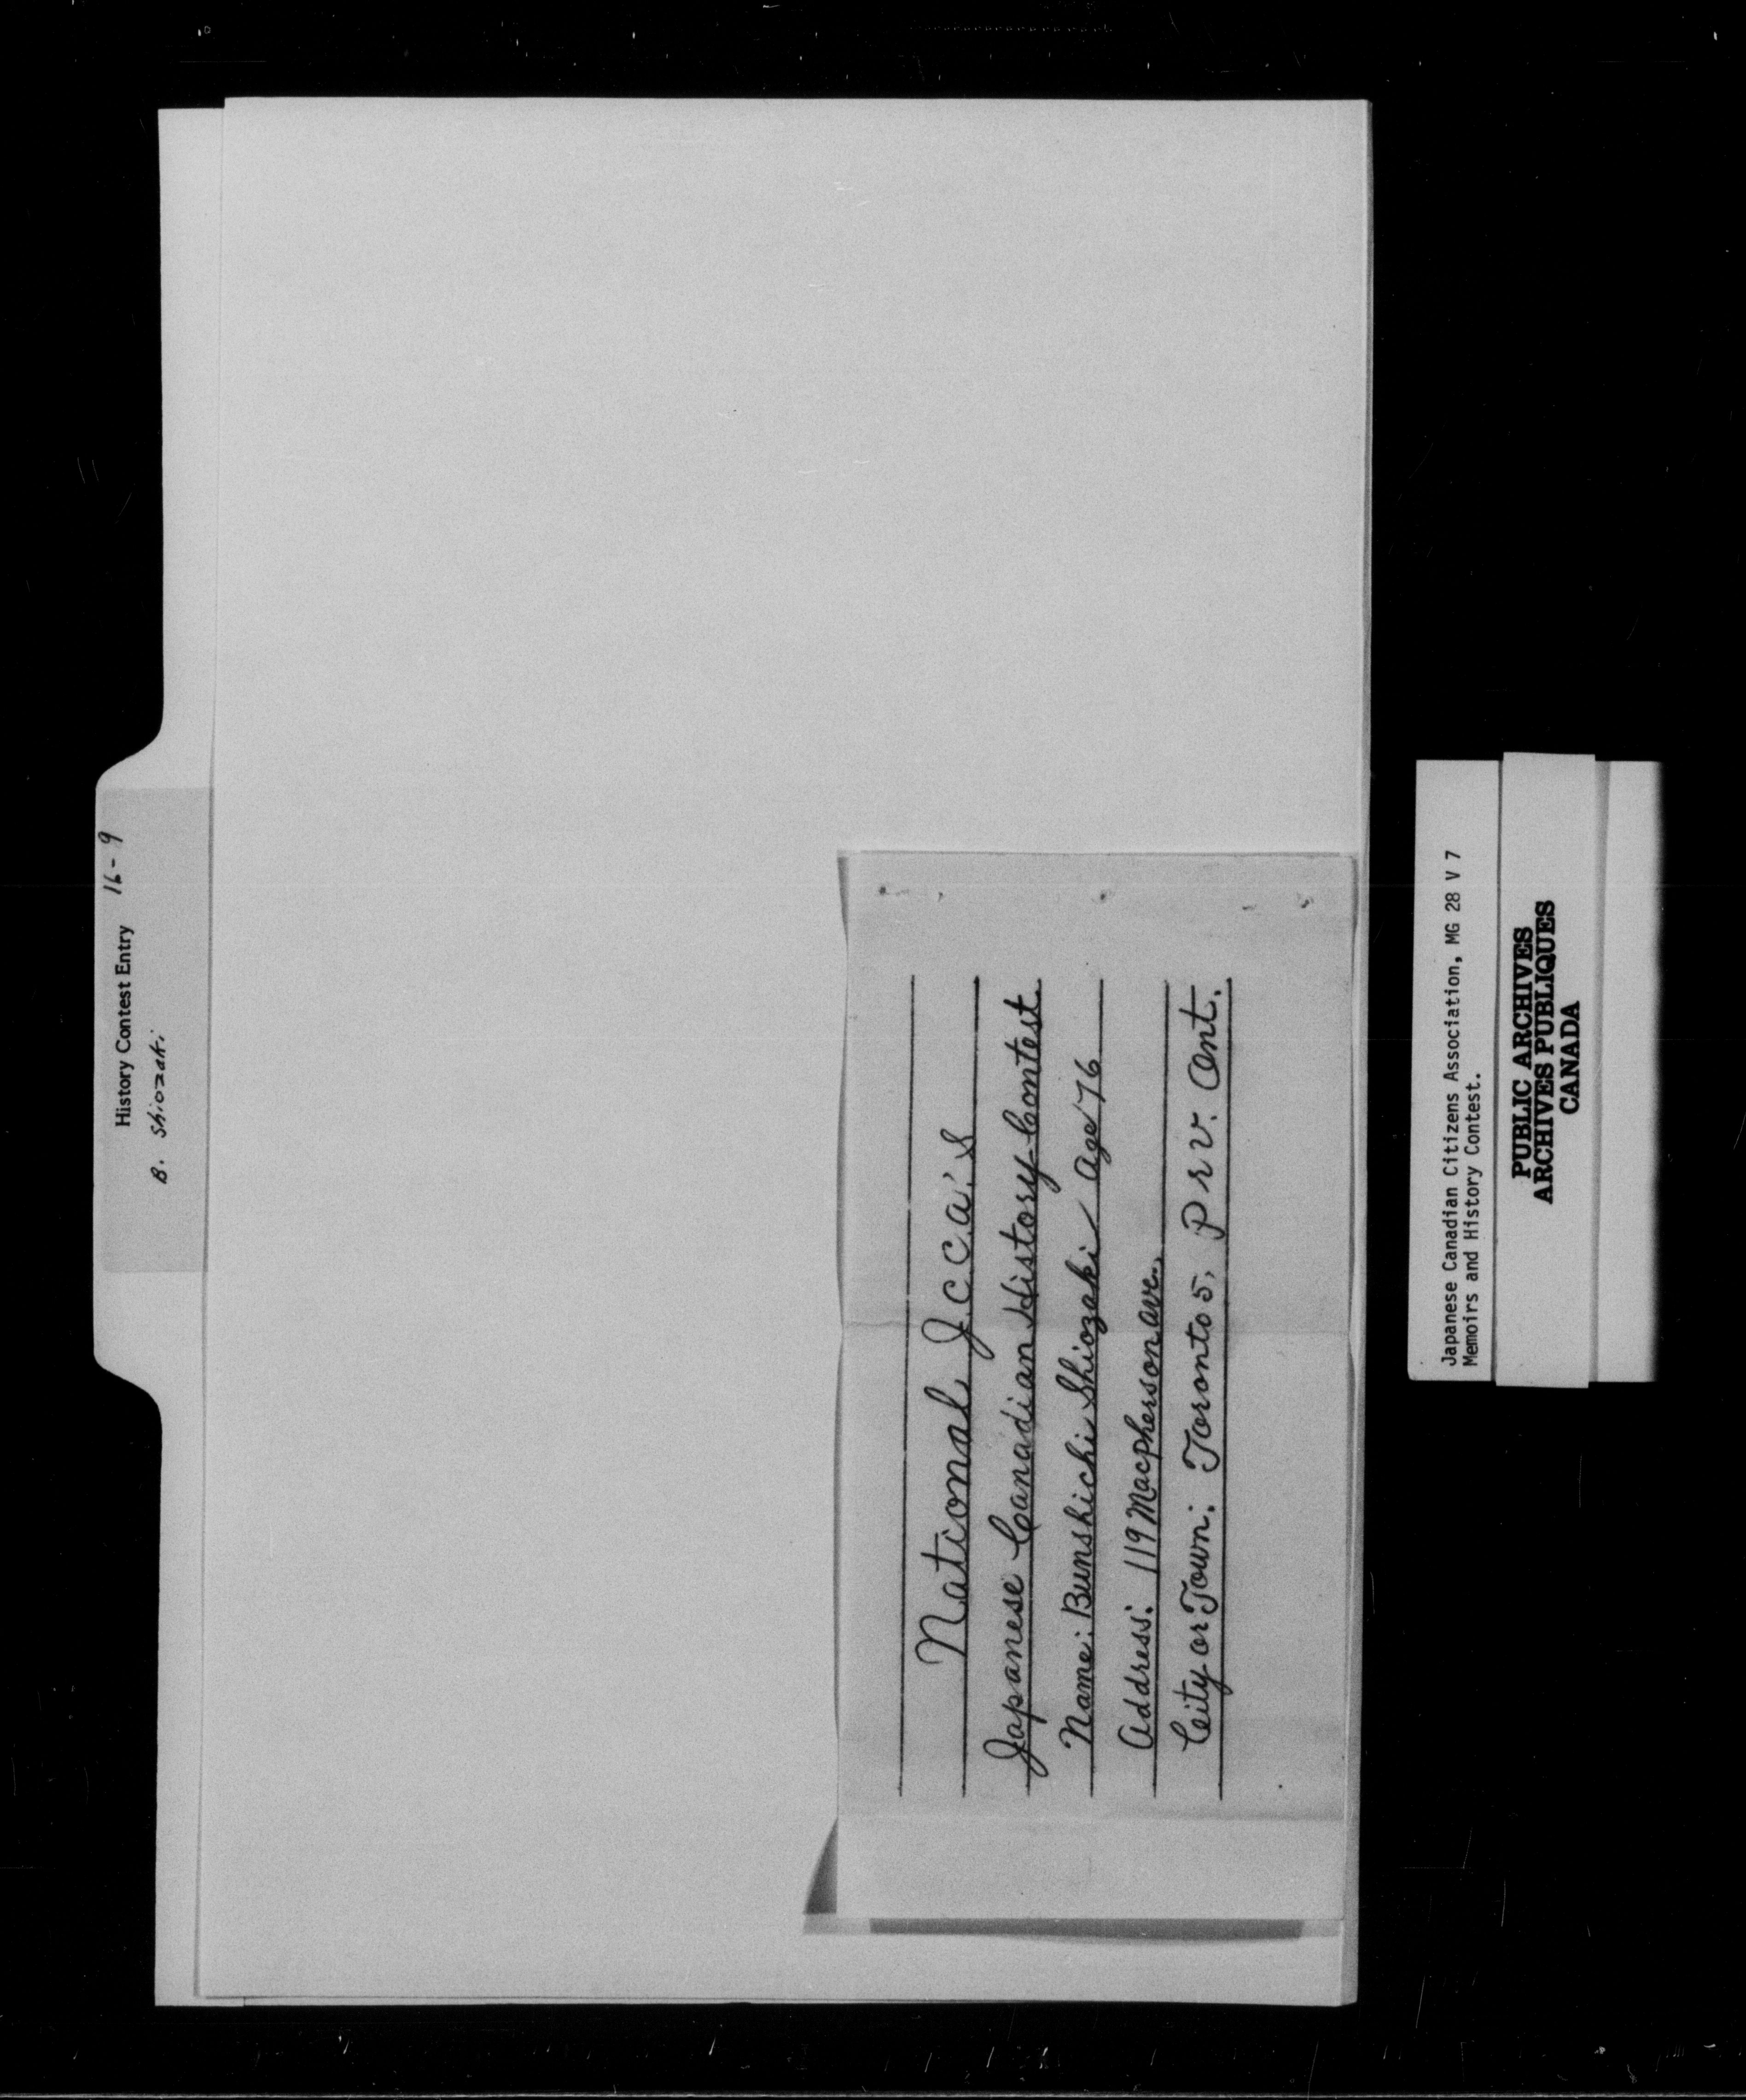 History Contest Entry 16-9
B. Shiozaki
National J.C.C.A.'s
Japanese Canadian History Contest.
Name: Bunshichi Shiozaki Age 76
Address: 119 Macpherson Ave.,
City or Town: Toronto 5, Prv. Ont.
Japanese Canadian Citizens Association, MG 28 V 7
Memoirs and History Contest.
PUBLIC ARCHIVES
ARCHIVES PUBLIQUES
CANADA